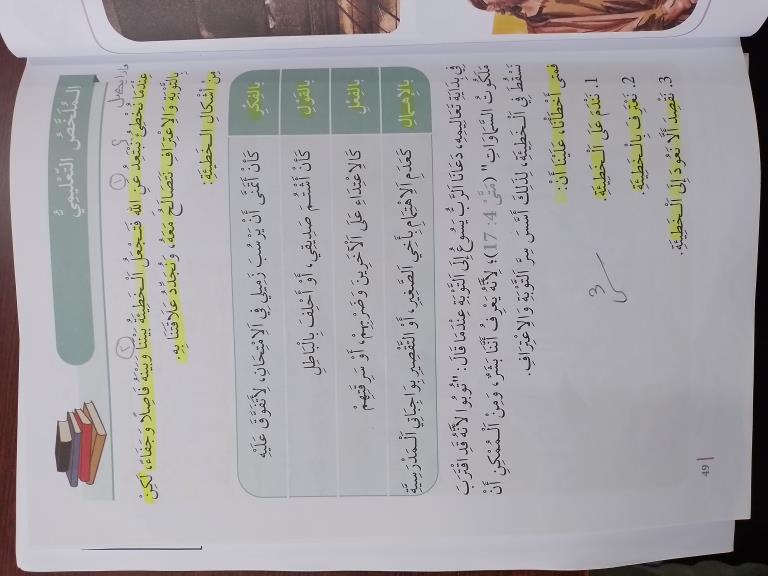 المُلَخَّصُ التَّعْلِيمِيُّ
عِنْدَمَا نُخْطِئُ نَبْتَعِدُ عَنِ الله فَتَجْعَلُ الْخَطِيئَةُ بَيْنَنَا وَبَيْنَهُ فَاصِلًا وَجَفَاءً، لَكِنْ
بِالتَّوْبَةِ وَالِاعْتِرَافِ نَتَصَالَحُ مَعَهُ، وَنُجَدِّدُ عَلَاقَتَنَا بِهِ.
مِنْ أَشْكَالِ الْخَطِيئَةِ:
بِالْفِكْرِ كَأَنْ أَتَمَنَّى أَنْ يَرْسُبَ زَمِيلِي فِي الِامْتِحَانِ، لِأَتَفَوَّقَ عَلَيْهِ
بِالْقَوْلِ كَأَنْ أَشْتُمَ صَدِيقِي، أَوْ أَحْلِفَ بِالْبَاطِلِ
بِالْفِعْلِ كَالِاعْتِدَاءِ عَلَى الْآخَرِينَ وَضَرْبِهِمْ، أَوْ سَرِقَتِهِمْ
بِالْإِهْمَالِ كَعَدَمِ الِاهْتِمَامِ بِأَخِي الصَّغِيرِ، أَوِ التَّقْصِيرِ بِوَاجِبَاتِي الْمَدْرَسِيَّةِ
فِي بِدَايَةِ تَعَالِيمِهِ، دَعَانَا الرَّبُّ يَسُوعُ إِلَى التَّوْبَةِ عِنْدَمَا قَالَ: "تُوبُوا لِأَنَّهُ قَدِ اقْتَرَبَ
مَلَكُوتُ السَّمَاوَاتِ" (مَتَّى 4: 17)؛ لِأَنَّهُ يَعْرِفُ أَنَّنَا بَشَرٌ، وَمِنَ الْمُمْكِنِ أَنْ
نَسْقُطَ فِي الْخَطِيئَةِ، لِذَلِكَ أَسَّسَ سِرَّ التَّوْبَةِ وَالِاعْتِرَافِ.
فَمَتَى أَخْطَأْنَا، عَلَيْنَا أَنْ:
1. نَنْدَمَ عَلَى الْخَطِيئَةِ.
2. نَعْتَرِفَ بِالْخَطِيئَةِ.
3. نَقْصِدَ أَلَّا نَعُودَ إِلَى الْخَطِيئَةِ.
49